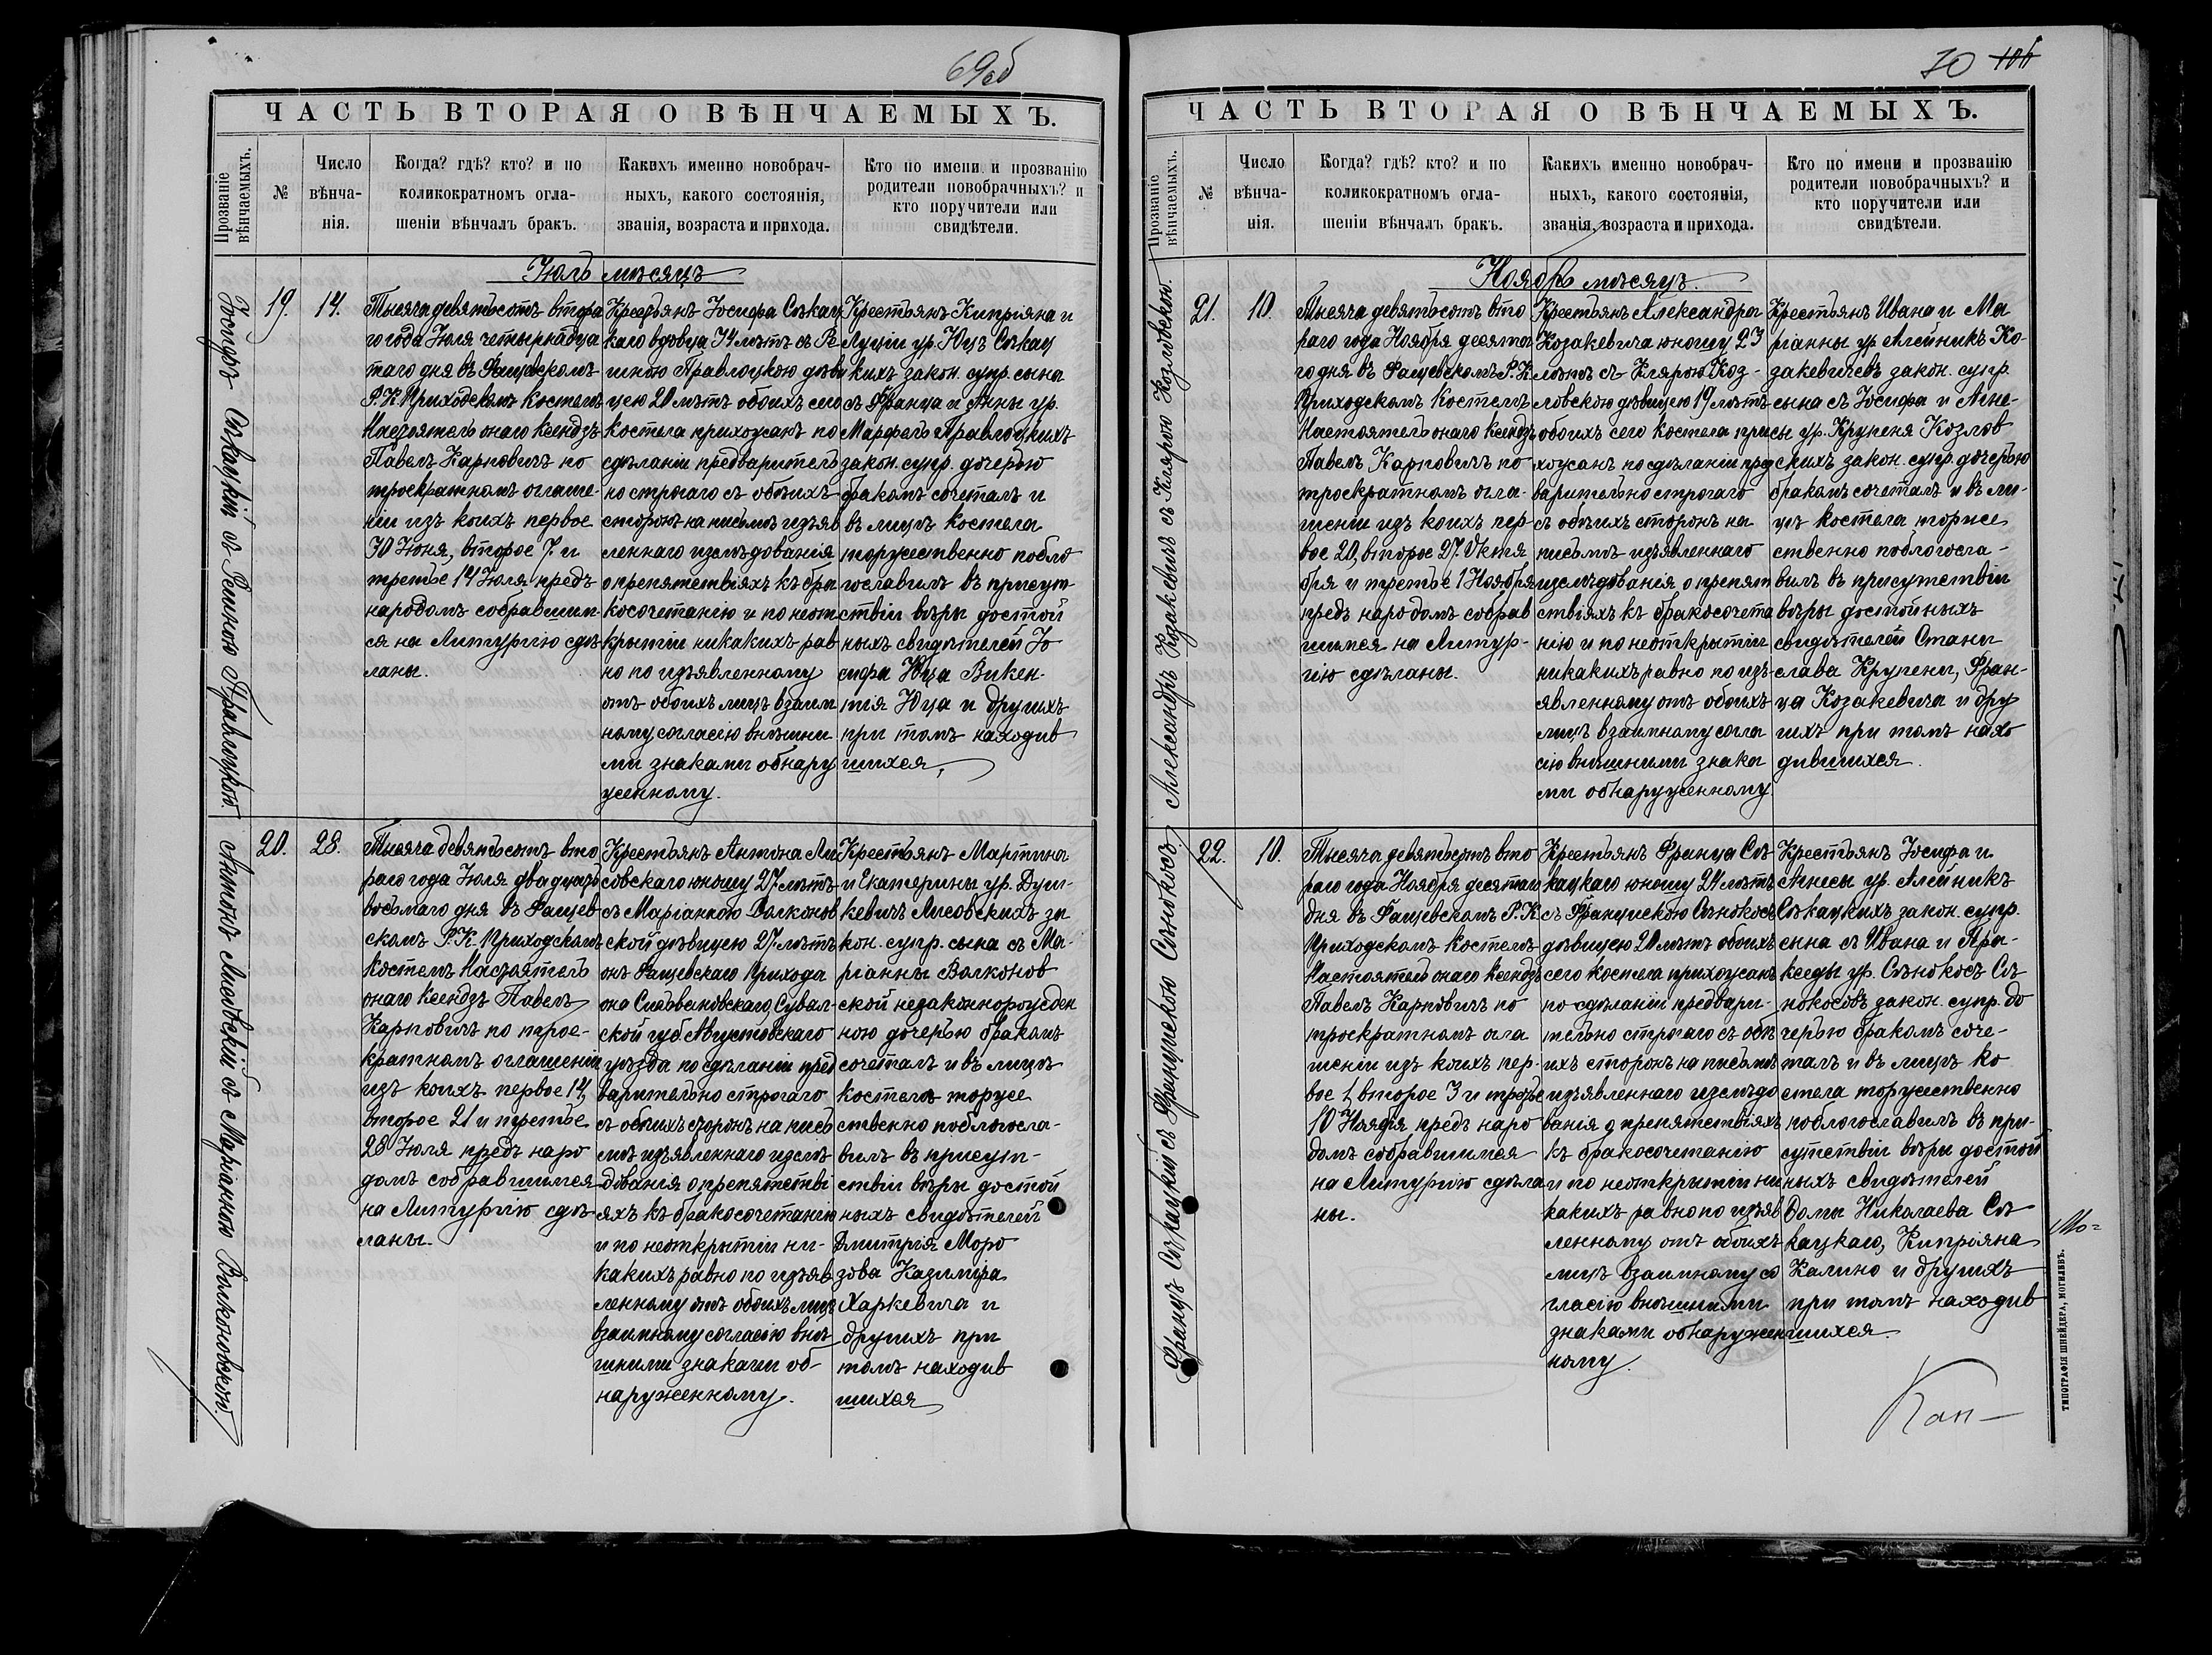 69об
ЧАСТЬ ВТОРАЯ О ВѢНЧАЕМЫХЪ.
Прозваніе вѣнчаемыхъ.
№
Число
вѣнча-
нія.
Когда? гдѣ? кто? и по
коликократномъ огла-
шеніи вѣнчалъ бракъ.
Какихъ именно новобрач-
ныхъ, какого состоянія,
званія, возраста и прихода.
Кто по имени и прозванію
родители новобрачныхъ? и
кто поручители или
свидѣтели.
Іюль мѣсяцъ
Іосифъ Сѣкацкій съ
19.
14.
Тысяча девятьсотъ втора
го года Іюля четырнадца
таго дня въ Фащевскомъ
Р. К. Приходскомъ Костелѣ
Настоятель онаго Ксендзъ
Павелъ Карповичъ по
троекратномъ оглаше-
ніи изъ коихъ первое
30 Іюня, второе 7. и
третье 14 Іюля предъ
народомъ собравшим
ся на Литургію сдѣ
ланы.
Крестьянъ Іосифа Сѣкац
каго вдовца 34 лѣтъ съ
дѣви
цею 20 лѣтъ обоихъ сего
костела прихожанъ по
сдѣланіи предваритель
но строгаго съ обѣихъ
сторонъ на письмѣ изъяв
леннаго изслѣдованія
о препятствіяхъ къ бра
косочетанію и по неот
крытіи никакихъ рав
но по изъявленному
отъ обоихъ лицъ взаим
ному согласію внѣшни
ми знаками обнару
женному.
Крестьянъ Кипріяна и
Луціи ур. Юцъ Сѣкац
кихъ закон. супр. сына
съ Франца и Анны ур.
закон. супр. дочерью
бракомъ сочеталъ и
въ лицѣ костела
торжественно побло
гославилъ въ присут
ствіи вѣры достой
ныхъ свидѣтелей Іо
сифа Юца Викен-
тія Юца и другихъ
при томъ находив
шихся.
Антонъ Лисовскій съ Маріанною Волконовскою.
20.
28.
Тысяча девятьсотъ вто
раго года Іюля двадцать
восьмаго дня въ Фащев
скомъ Р. К. Приходскомъ
Костелѣ Настоятель
онаго Ксендзъ Павелъ
Карповичъ по трое-
кратномъ оглашеніи
изъ коихъ первое 14,
второе 21 и третье
28 Іюля предъ наро
домъ собравшимся
на Литургію сдѣ
ланы.
Крестьянъ Антона Ли
совскаго юношу 27 лѣтъ
съ Маріанною Волконов
ской дѣвицею 27 лѣтъ
онъ Фащевскаго Прихода
она Сувал-
ской губ. Августовскаго
уѣзда по сдѣланіи пред
варительно строгаго
съ обѣихъ сторонъ на пись
мѣ изъявленнаго изслѣ
дованія о препятстві
яхъ къ бракосочетанію
и по неоткрытіи ни-
какихъ равно по изъяв
ленному отъ обоихъ лицъ
взаимному согласію внѣ
шними знаками об-
наруженному.
Крестьянъ Мартина
и Екатерины ур. Душ-
кевичъ Лисовскихъ за
кон. супр. сына съ Ма-
ріанны Волконов
ской незаконнорожден
ною дочерью бракомъ
сочеталъ и въ лицѣ
костела торже
ственно поблагосла-
вилъ въ присут-
ствіи вѣры достой
ныхъ свидѣтелей
Дмитрія Моро
зова Казиміра
Харкевича и
другихъ при
томъ находив
шихся
70 106
ЧАСТЬ ВТОРАЯ О ВѢНЧАЕМЫХЪ.
Прозваніе вѣнчаемыхъ.
№
Число
вѣнча-
нія.
Когда? гдѣ? кто? и по
коликократномъ огла-
шеніи вѣнчалъ бракъ.
Какихъ именно новобрач-
ныхъ, какого состоянія,
званія, возраста и прихода.
Кто по имени и прозванію
родители новобрачныхъ? и
кто поручители или
свидѣтели.
Ноябрь мѣсяцъ.
Александръ Козакевичъ съ Клярою Козловскою.
21.
10.
Тысяча девятьсотъ вто
раго года Ноября десята
го дня въ Фащевскомъ Р. К.
Приходскомъ Костелѣ
Настоятель онаго Ксендзъ
Павелъ Карповичъ по
троекратномъ огла-
шеніи изъ коихъ пер-
вое 20, второе 27. Октя
бря и третье 1 Ноября
предъ народомъ собрав
шимся на Литур-
гію сдѣланы.
Крестьянъ Александра
Козакевича юношу 23
лѣтъ съ Клярою Коз-
ловскою дѣвицею 19 лѣтъ
обоихъ сего костела при
хожанъ по сдѣланіи пред
варительно строгаго
съ обѣихъ сторонъ на
письмѣ изъявленнаго
изслѣдованія о препят
ствіяхъ къ бракосочета
нію и по неоткрытіи
никакихъ равно по изъ-
явленному отъ обоихъ
лицъ взаимному согла
сію внѣшними знака
ми обнаруженному.
Крестьянъ Ивана и Ма
ріанны ур. Алейникъ Ко-
закевичевъ закон. супр.
сына съ Іосифа и Агне-
сы ур. Крупеня Козлов
скихъ закон. супр. дочерью
бракомъ сочеталъ и въ ли-
цѣ костела торже
ственно поблогосла-
вилъ въ присутствіи
вѣры достойныхъ
свидѣтелей Стани
слава Крупени, Фран-
ца Козакевича и дру
гихъ при томъ нахо
дившихся.
Францъ Сѣкацкій съ Францишкою Сѣнокосъ
22.
10.
Тысяча девятьсотъ вто
раго года Ноября десятаго
дня въ Фащевскомъ Р. К.
Приходскомъ Костелѣ
Настоятель онаго Ксендзъ
Павелъ Карповичъ по
троекратномъ огла
шеніи изъ коихъ пер-
вое 1, второе 3 и третье
10 Ноября предъ наро
домъ собравшимся
на Литургію сдѣла
ны.
Крестьянъ Франца Сѣ
кацкаго юношу 24 лѣтъ
съ Францишкою Сѣнокосъ
дѣвицею 20 лѣтъ обоихъ
сего костела прихожанъ
по сдѣланіи предвари-
тельно строгаго съ обѣ
ихъ сторонъ на письмѣ
изъявленнаго изслѣдо
ванія о препятствіяхъ
къ бракосочетанію
и по неоткрытіи ни
какихъ равно по изъяв
ленному отъ обоихъ
лицъ взаимному со
гласію внѣшними
знаками обнаружен
ному.
Крестьянъ Іосифа и
Агнесы ур. Алейникъ
Сѣкацкихъ закон. супр.
сына съ Ивана и Пра-
кседы ур. Сѣнокосъ Сѣ
нокосовъ закон. супр. до
черью бракомъ соче-
талъ и въ лицѣ ко
стела торжественно
поблогославилъ въ при-
сутствіи вѣры достой
ныхъ свидѣтелей
Домы Николаева Сѣ
кацкаго, Кипріяна
Калино и другихъ
при томъ находив
шихся.
Мо=
Кап-
ТИПОГРАФІЯ ШНЕЙДЕРА, МОГИЛЕВЪ.